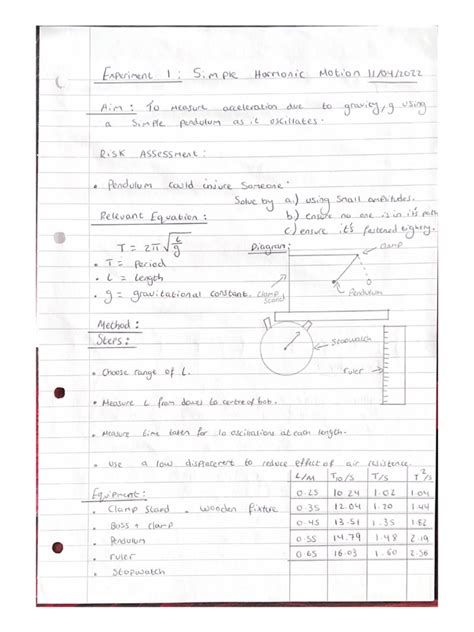 Experiment 1 : Simple Harmonic Motion 11/04/2022
Aim : To measure acceleration due to gravity, g using
a simple pendulum as it oscillates.
Risk Assessment :
• Pendulum could injure someone.
Solve by a.) using small amplitudes.
b.) ensure no one is in it's path
c.) ensure it's fastened tightly.
Relevant Equation :
T = 2π√L/g
• T = Period
• L = Length
• g = gravitational constant.
Diagram:
Clamp
Clamp
Stand
Pendulum
Stopwatch
ruler
Method :
Steps :
• Choose range of L.
• Measure L from dowel to centre of bob.
• Measure time taken for 10 oscillations at each length.
• Use a low displacement to reduce effect of air resistance.
Equipment :
• Clamp Stand • Wooden fixture
• Boss + Clamp
• Pendulum
• ruler
• Stopwatch
L/M T10/S T/S T²/S
0.25 10.24 1.02 1.04
0.35 12.04 1.20 1.44
0.45 13.51 1.35 1.82
0.55 14.79 1.48 2.19
0.65 16.03 1.60 2.56